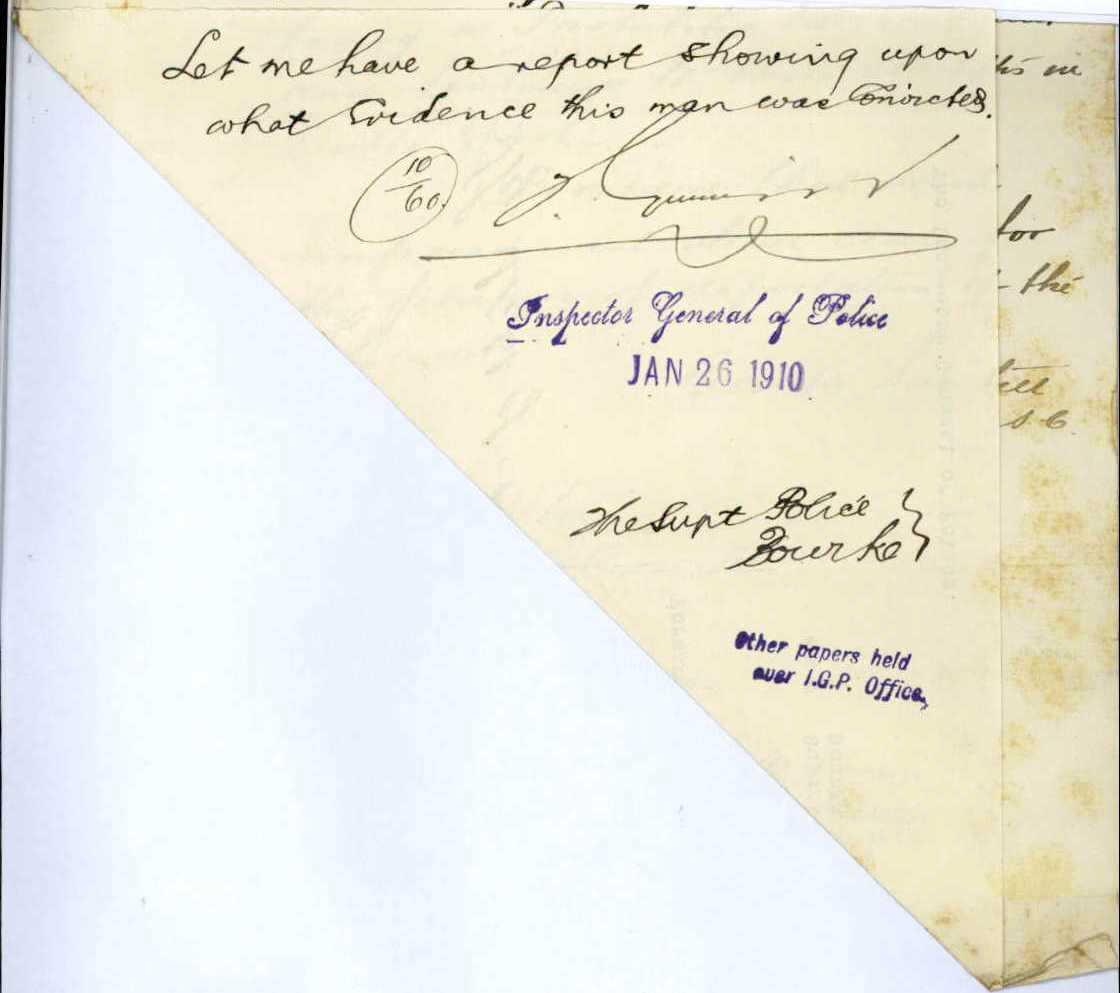 Let me have a report showing upon
what Evidence this man was Convicted.
10
60.
Inspector General of Police
JAN 26 1910
The Supt Police
Bourke
Other papers held
over I.G.P. Office,
the